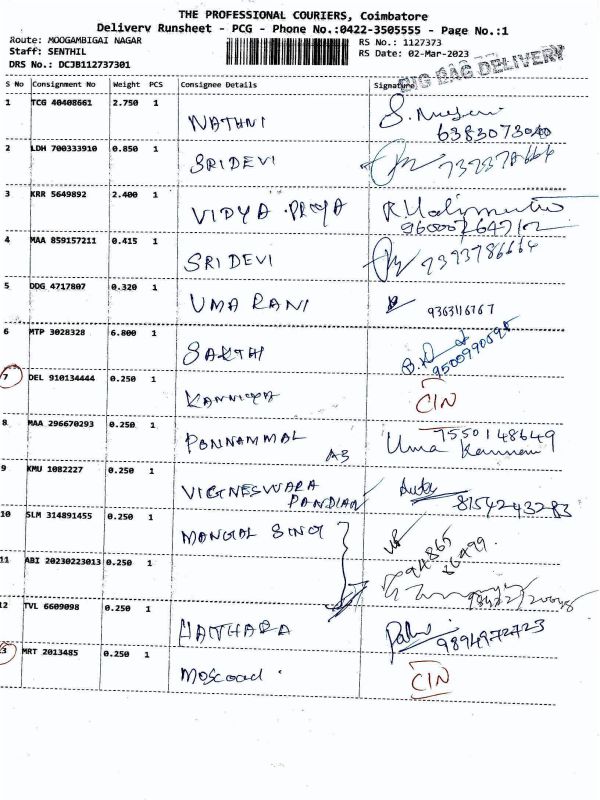 THE PROFESSIONAL COURIERS, Coimbatore
Delivery Runsheet - PCG - Phone No.:0422-3505555 - Page No.:1
Route: MOOGAMBIGAI NAGAR
RS No.: 1127373
Staff: SENTHIL
RS Date: 02-Mar-2023
DRS No.: DCJB112737301
BIG BAG DELIVERY
S No Consignment No Weight PCS Consignee Details Signature
1 TCG 40408661 2.750 1 NATHNI
6383073040
2 LDH 700333910 0.850 1 SRIDEVI
3 KRR 5649892 2.400 1 VIDYA PRIYA
4 MAA 859157211 0.415 1 SRIDEVI 7393786664
5 DDG 4717807 0.320 1 UMA RANI 9363116767
6 MTP 3028328 6.800 1 SAKTHI
9500990595
7 DEL 910134444 0.250 1 KANNIYA CIN
8 MAA 296670293 0.250 1 PONNAMMAL A3 7550148649
Uma
9 KMU 1082227 0.250 1 VIGNESWARA
PANDIAN 8154243283
10 SLM 314891455 0.250 1 MANGAL SINGH
94865
86499
11 ABI 20230223013 0.250 1
12 TVL 6609098 0.250 1 9894972723
13 MRT 2013485 0.250 1 CIN